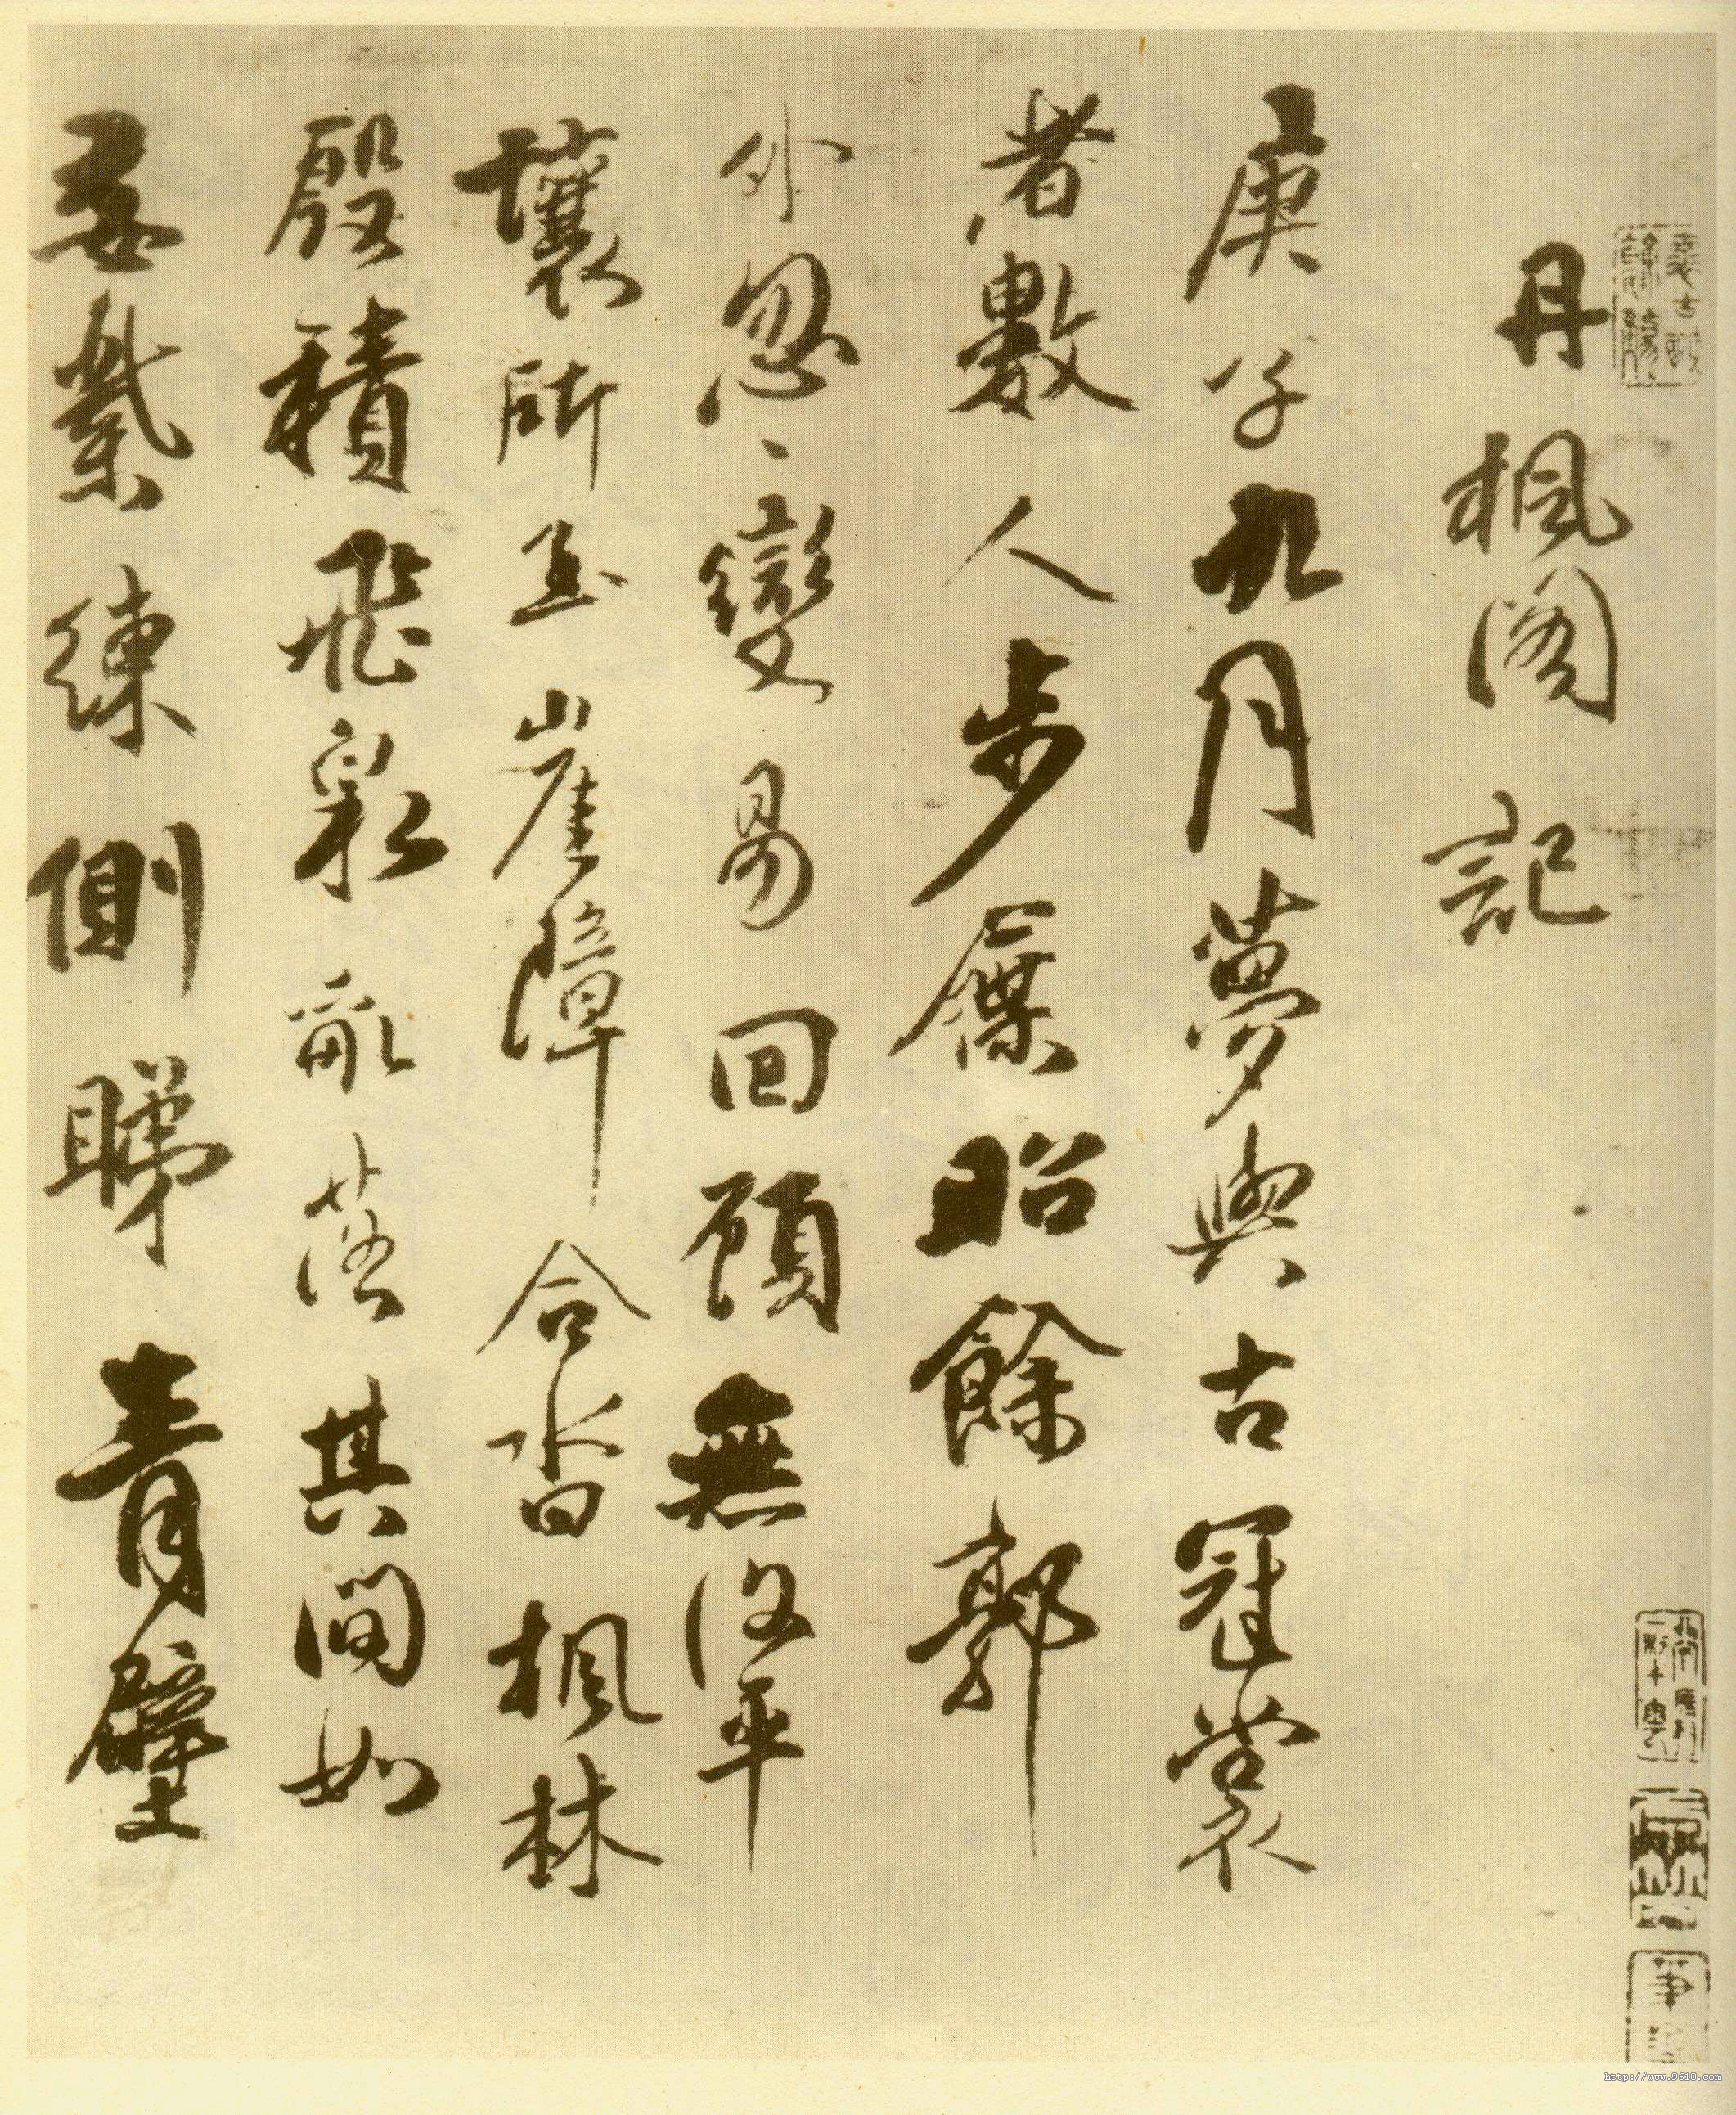 丹楓閣記
庚子九月夢與古冠裳
者數人步屧昭餘郭
外忽、變易回顧無復平
壤所至崖障合沓楓林
殷積飛泉亂落其間如
縈練側睇青壁
http://www.9610.com